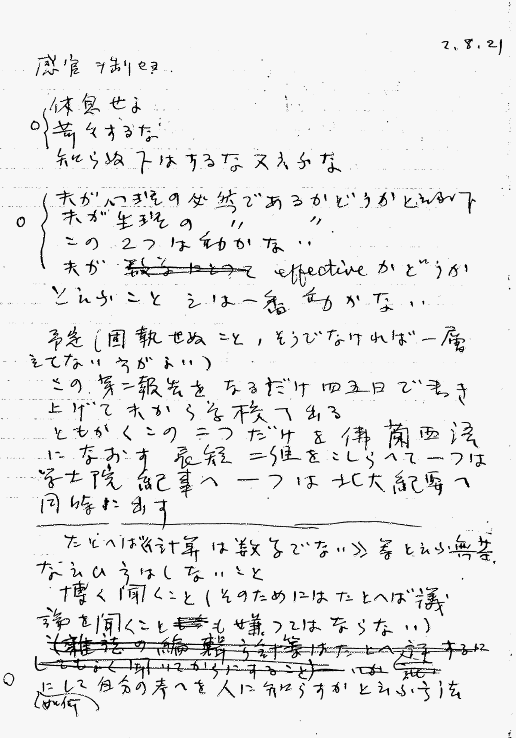 2.8.21
感官ヲ制セヨ
休息せよ
苦々するな
知らぬ下はするな又云ふな
夫が心理の必然であるかどうかと云ふ下
夫が生理の 〃 〃
この2つは動かない
夫が effective かどうか
と云ふこと えは一番動かない
予定(固執せぬこと,そうでなければ一層
立てない方がよい)
この第二報告をなるだけ四五日で書き
上げて夫から学校へ出る
ともかくこの二つだけを佛蘭西語
になおす 長短二種をこしらへて一つは
学士院紀事へ一つは北大紀要へ
同時に出す
たとへば《計算は数学でない》等と云ふ無茶
な云ひ方はしないこと
博く聞くこと(そのためにはたとへば議
論を聞くことも嫌ってはならない)
にして自分の考へを人に知らすかと云ふ方法
(如何)